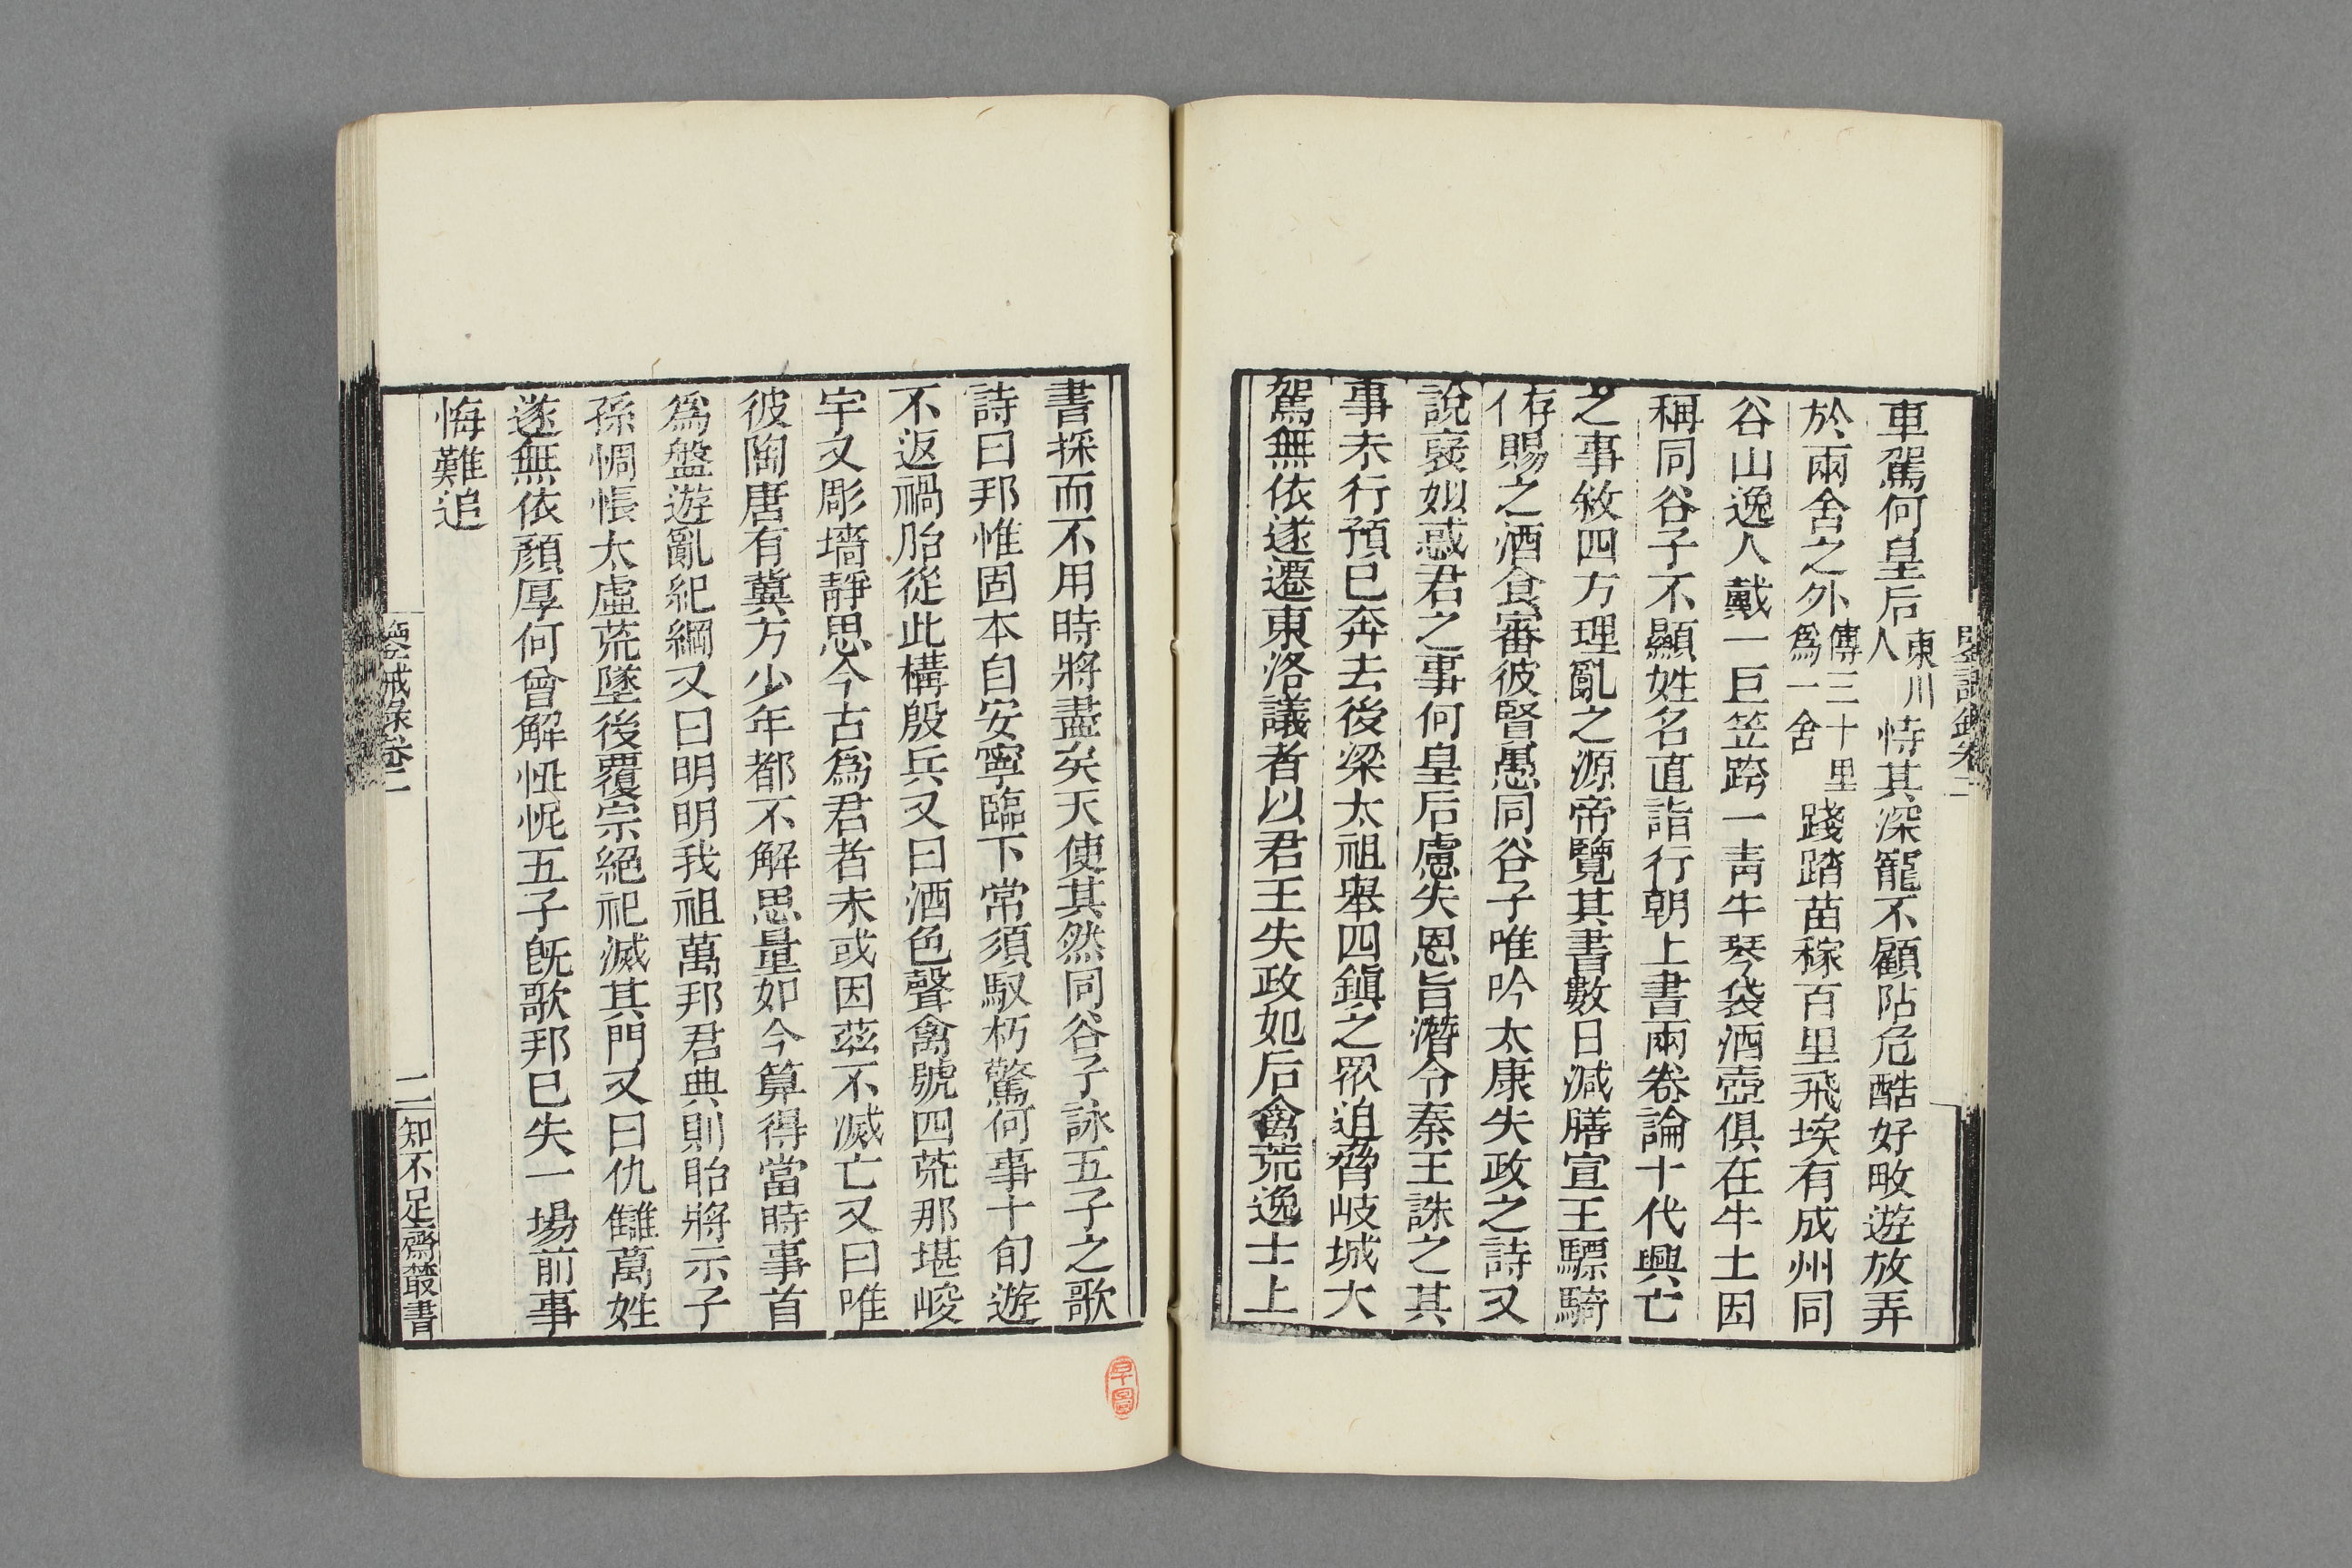 車駕何皇后東川人恃其深寵不顧阽危酷好畋遊放弄
於兩舍之外傳三十里爲一舍踐踏苗稼百里飛埃有成州同
谷山逸人戴一巨笠跨一靑牛琴袋酒壺俱在牛上因
稱同谷子不顯姓名直詣行朝上書兩卷論十代興亡
之事敘四方理亂之源帝覽其書數日減膳宣王驃騎
侑賜之酒食審彼賢愚同谷子唯吟太康失政之詩又
說襃姒惑君之事何皇后慮失恩旨潛令秦王誅之其
事未行預巳奔去後梁太祖舉四鎭之眾迫脅岐城大
駕無依遂遷東洛議者以君王失政妃后禽荒逸士上
書採而不用時將盡矣天使其然同谷子詠五子之歌
詩曰邦惟固本自安寧臨下常須馭朽驚何事十旬遊
不返禍胎從此構殷兵又曰酒色聲禽號四荒那堪峻
宇又彫墻靜思今古爲君者未或因茲不滅亡又曰唯
彼陶唐有冀方少年都不解思量如今算得當時事首
爲盤遊亂紀綱又曰明明我祖萬邦君典則貽將示子
孫惆悵太康荒墜後覆宗絕祀滅其門又曰仇讎萬姓
遂無依顏厚何曾解忸怩五子旣歌邦巳失一場前事
悔難追
鑒戒錄卷二
二
知不足齋叢書